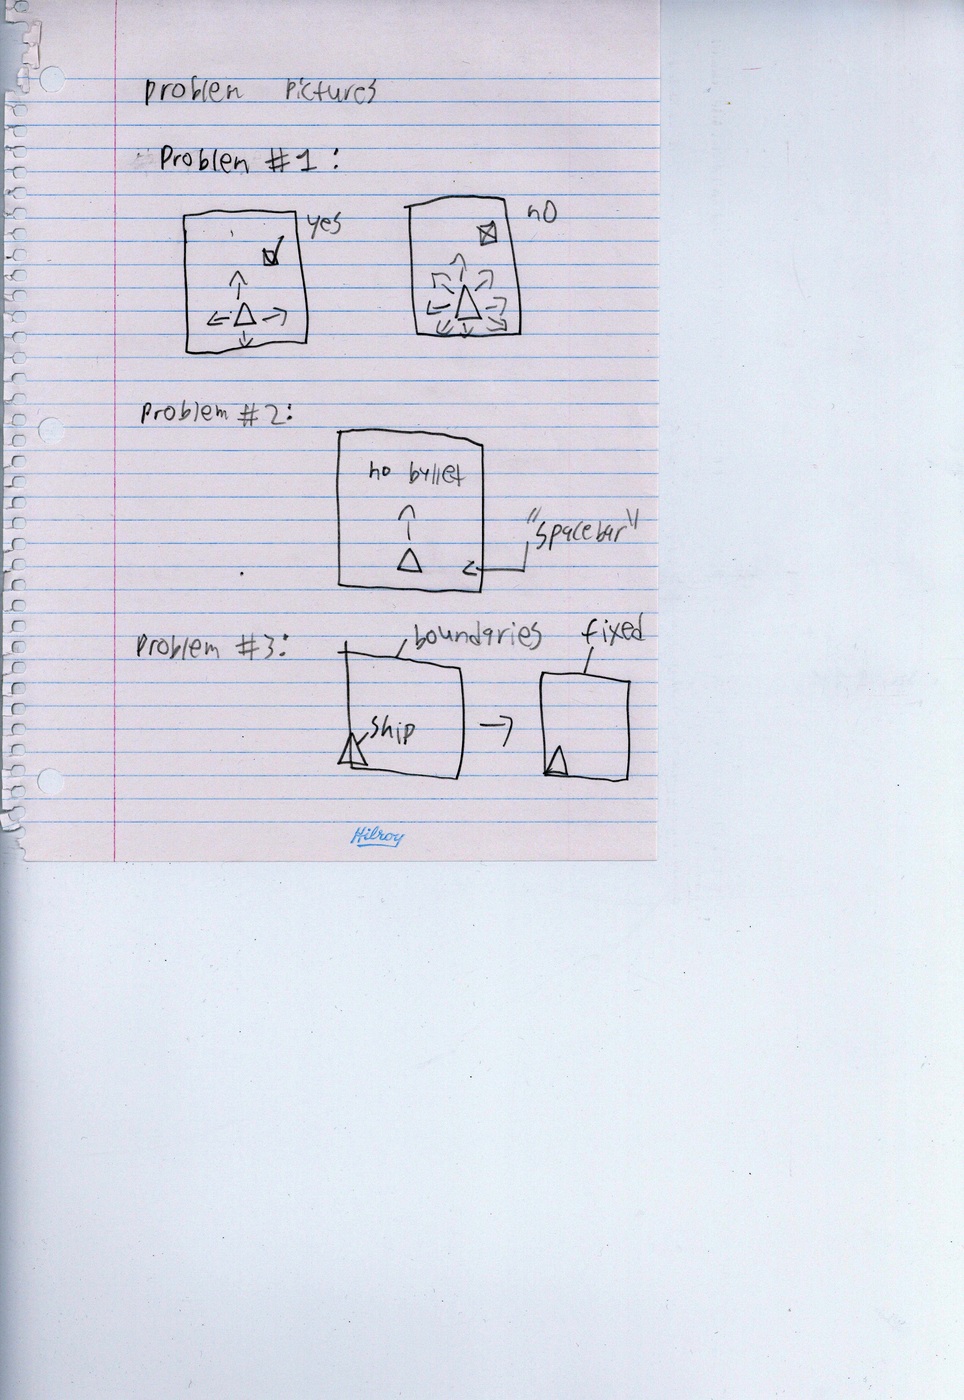 problem pictures
Problem #1:
yes
no
problem #2:
no bullet
"spacebar"
problem #3:
boundaries
fixed
ship
Hilroy